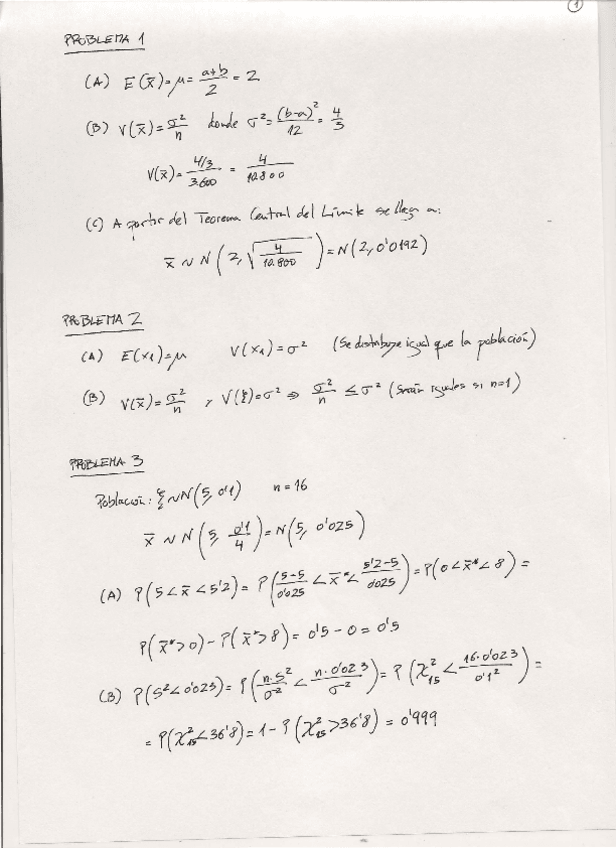 1
PROBLEMA 1
(A) E(x̄)=μ= (a+b)/2 = 2
(B) V(x̄)= σ²/n donde σ²= (b-a)²/12 = 4/3
V(x̄)= (4/3)/3.600 = 4/10.800
(C) A partir del Teorema Central del Límite se llega a:
x̄ ~ N(2, √(4/10.800)) = N(2, 0'0192)
PROBLEMA 2
(A) E(x₁)=μ V(x₁)=σ² (Se distribuye igual que la población)
(B) V(x̄)= σ²/n , V(ξ)=σ² ⇒ σ²/n ≤ σ² (Serán iguales si n=1)
PROBLEMA 3
Población: ξ ~ N(5, 0'1) n=16
x̄ ~ N(5, 0'1/4) = N(5, 0'025)
(A) P(5 < x̄ < 5'2) = P((5-5)/0'025 < x̄* < (5'2-5)/0'025) = P(0 < x̄* < 8) =
P(x̄* > 0) - P(x̄* > 8) = 0'5 - 0 = 0'5
(B) P(S² < 0'023) = P(n·S²/σ² < n·0'023/σ²) = P(χ²₁₅ < 16·0'023/0'1²) =
= P(χ²₁₅ < 36'8) = 1 - P(χ²₁₅ > 36'8) = 0'999